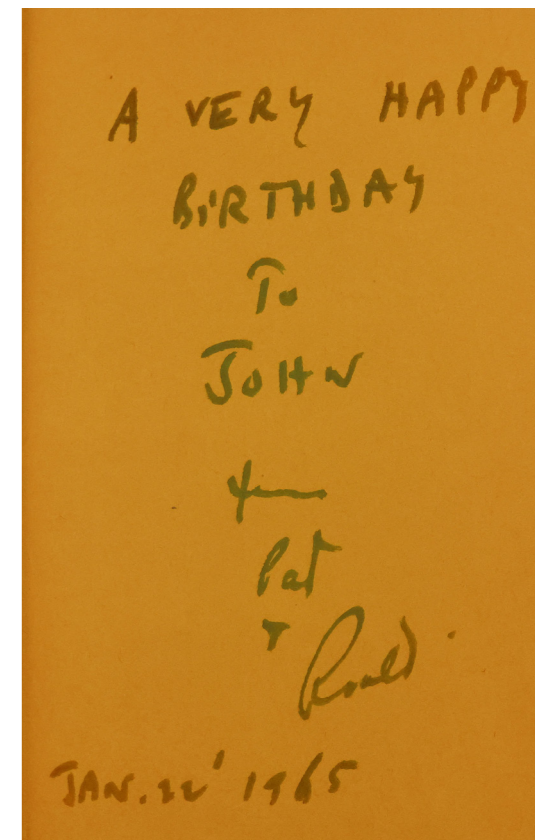 A VERY HAPPY
BIRTHDAY
To
JOHN
from
Pat
+
Roald
JAN. 22' 1965